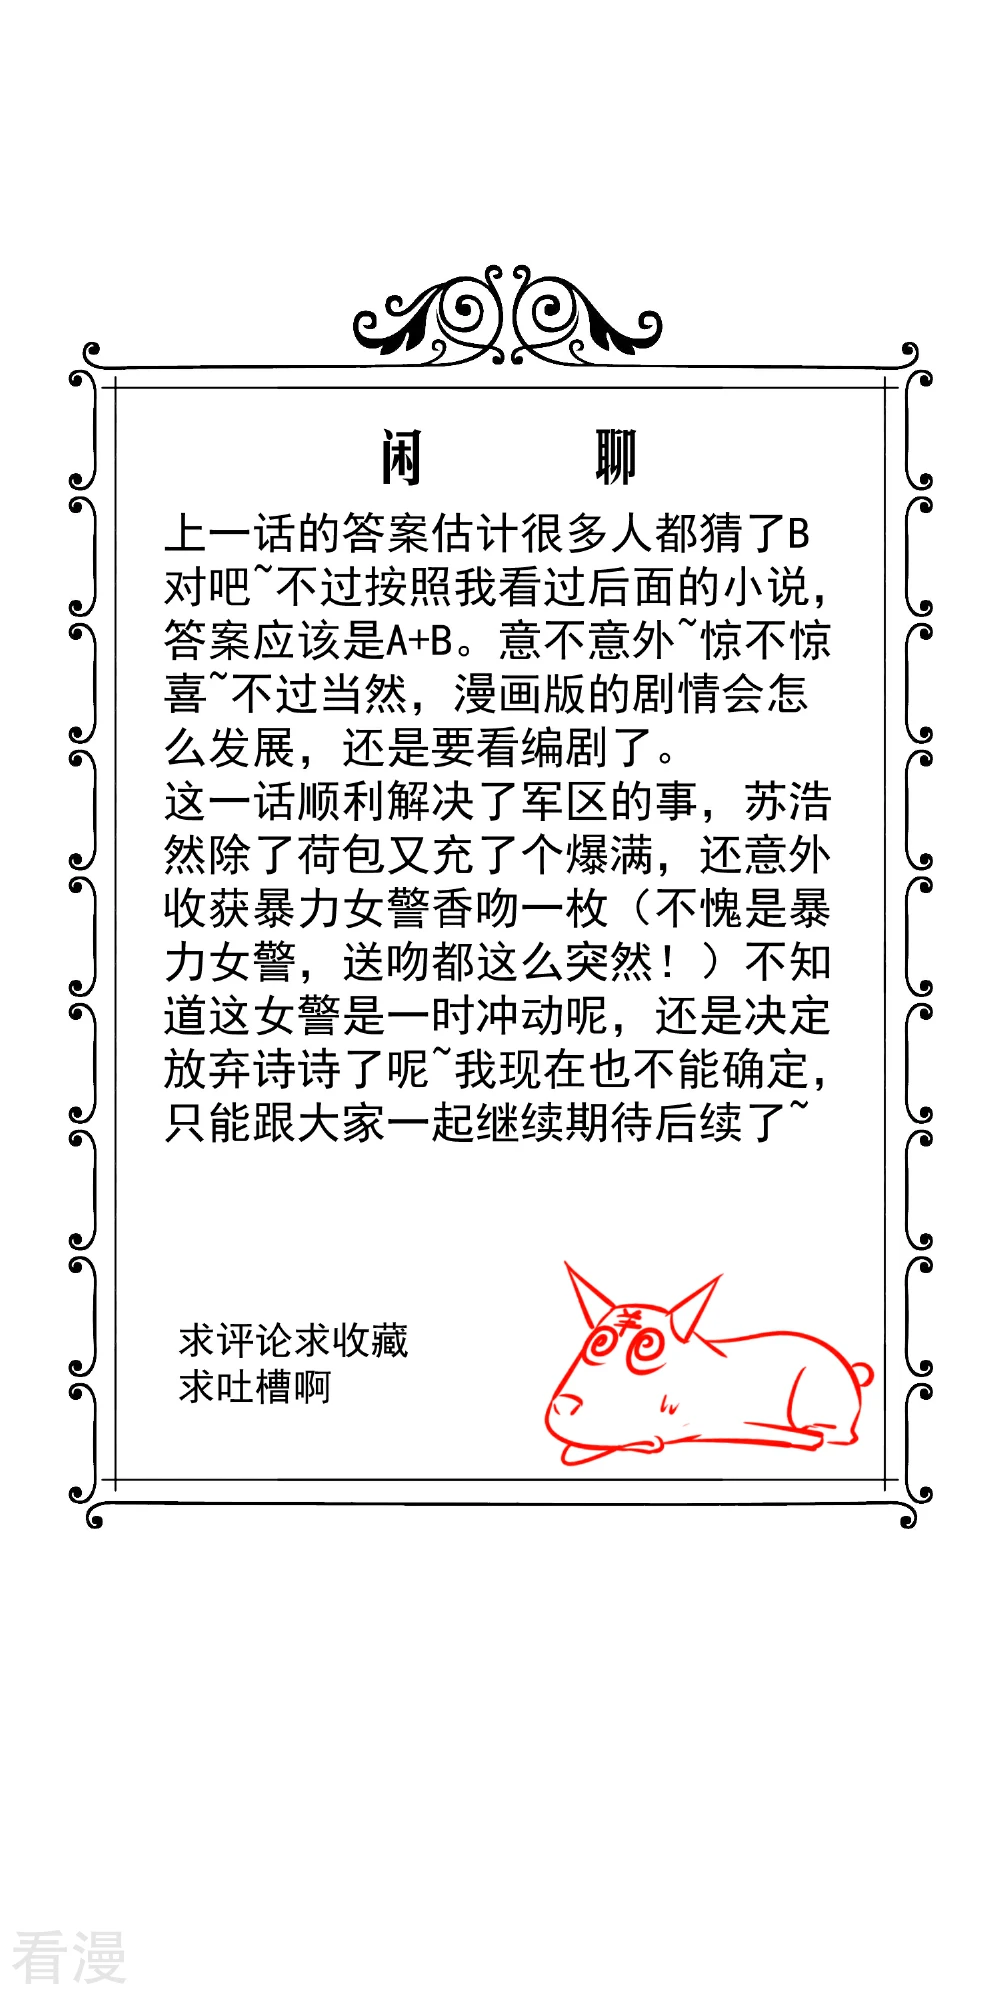 闲 聊
上一话的答案估计很多人都猜了B
对吧~不过按照我看过后面的小说，
答案应该是A+B。意不意外~惊不惊
喜~不过当然，漫画版的剧情会怎
么发展，还是要看编剧了。
这一话顺利解决了军区的事，苏浩
然除了荷包又充了个爆满，还意外
收获暴力女警香吻一枚（不愧是暴
力女警，送吻都这么突然！）不知
道这女警是一时冲动呢，还是决定
放弃诗诗了呢~我现在也不能确定，
只能跟大家一起继续期待后续了~
求评论求收藏
求吐槽啊
看漫